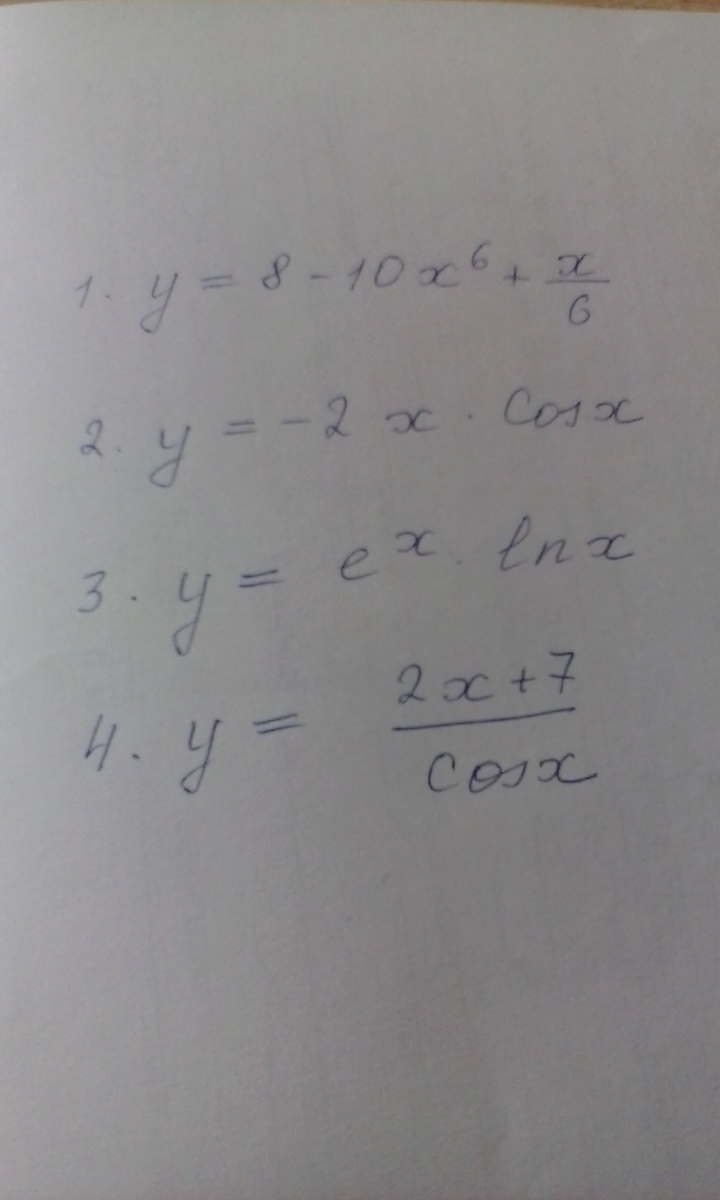 1. y = 8 - 10x⁶ + x/6
2. y = -2x · cosx
3. y = eˣ · lnx
4. y = (2x+7)/cosx